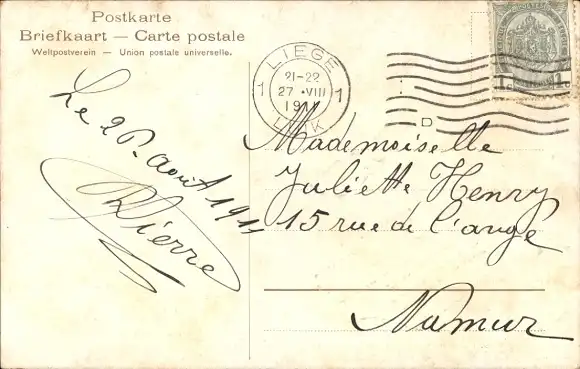 Postkarte
Briefkaart — Carte postale
Weltpostverein — Union postale universelle.
LIEGE
21-22
1 27 · VIII 1
19
LUIK
D
1c 1c
Le Août 1911
Pierre
Mademoiselle
Juliette Henry
15 rue de l'ange
Namur